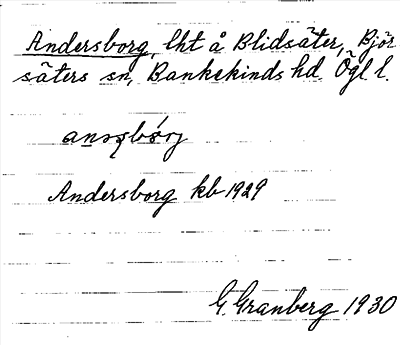 Andersborg, lht å Blidsäter, Björ
säters sn, Bankekinds hd Ögl l.
Andersborg kb 1929
G. Granberg 1930